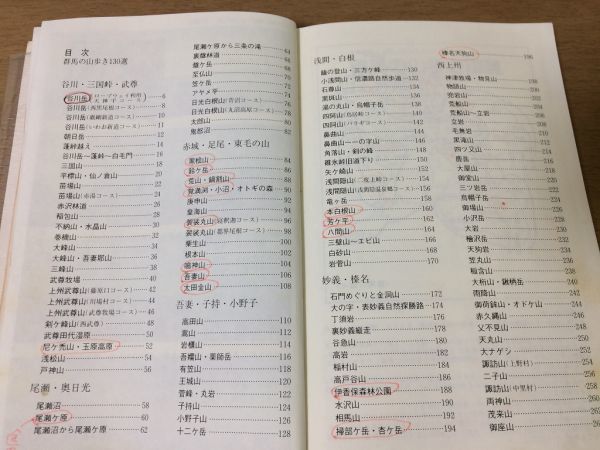 目次
群馬の山歩き130選
谷川・三国峠・武尊
谷川岳(ロープウェイ利用 天神平コース)……6
谷川岳(西黒尾根コース)……8
谷川岳(巌剛新道コース)……10
谷川岳(いわお新道コース)……11
朝日岳……12
蓬峠越え……14
谷川岳―蓬峠―白毛門……16
三国山……18
平標山・仙ノ倉山……20
苗場山……22
苗場山(赤湯コース)……24
赤沢林道……26
稲包山……28
不納山・水晶山……30
巻機山……32
大峰山……34
大峰山・吾妻耶山……36
三峰山……38
武尊牧場……40
上州武尊山(藤原口コース)……42
上州武尊山(川場村コース)……44
上州武尊山(武尊牧場コース)……46
剣ケ峰山(西武尊)……48
武尊田代湿原……50
尼ケ禿山・玉原高原……52
浅松山……54
戸神山……56
尾瀬・奥日光
尾瀬沼……58
尾瀬ケ原……60
尾瀬沼から尾瀬ケ原……62
尾瀬ケ原から三条の滝……64
裏燧林道……66
燧ケ岳……68
至仏山……70
笠ケ岳……72
アヤメ平……74
日光白根山(菅沼コース)……76
日光白根山(丸沼高原コース)……78
太郎山……80
鬼怒沼……82
赤城・足尾・東毛の山
黒桧山……84
鈴ケ岳……86
荒山・鍋割山……88
覚満淵・小沼・オトギの森……90
庚申山……92
皇海山……94
袈裟丸山(寝釈迦コース)……96
袈裟丸山(郡界尾根コース)……98
栗生山……100
根本山……102
鳴神山……104
吾妻山……106
太田金山……108
吾妻・子持・小野子
高田山……110
嵩山……112
岩櫃山……114
吾嬬山・薬師岳……116
有笠山……118
王城山……120
菅峰・丸岩……122
子持山……124
小野子山……126
十二ケ岳……128
浅間・白根
籠の登山・三方ケ峰……130
小浅間山・信濃路自然歩道……132
石尊山……134
黒斑山……136
湯の丸山・烏帽子岳……138
四阿山(鳥居峠コース)……140
四阿山(パラギコース)……142
鼻曲山……144
鼻曲山――の字山……146
角落山・剣の峰……148
碓氷峠旧道下り……150
矢ケ崎山……152
浅間隠山(二度上峠コース)……154
浅間隠山(浅間隠温泉郷コース)……156
竜ヶ岳……158
本白根山……160
芳ケ平……162
八間山……164
三壁山～エビ山……166
白砂山……168
岩菅山……170
妙義・榛名
石門めぐりと金洞山……172
大の字・表妙義自然探勝路……174
丁須岩……176
裏妙義縦走……178
谷急山……180
高岩……182
稲村山……184
高戸谷山……186
伊香保森林公園……188
水沢山……190
相馬山……192
掃部ケ岳・杏ケ岳……194
榛名天狗山……196
西上州
神津牧場・物見山
物語山
荒船山
荒船山～立岩
立岩
毛無岩
黒滝山
四ツ又山
鹿岳
大屋山
御堂山
三ツ岩岳
烏帽子岳
御場山
小沢岳
大岩
檜沢岳
天狗岩
笠丸山
稲含山
大桁山・鍬柄岳
雨降山
御荷鉾山・オドケ山
赤久縄山
父不見山
天丸山
大ナゲシ
諏訪山(上野村)
二子山
諏訪山(中里村)
両神山
茂来山
御座山